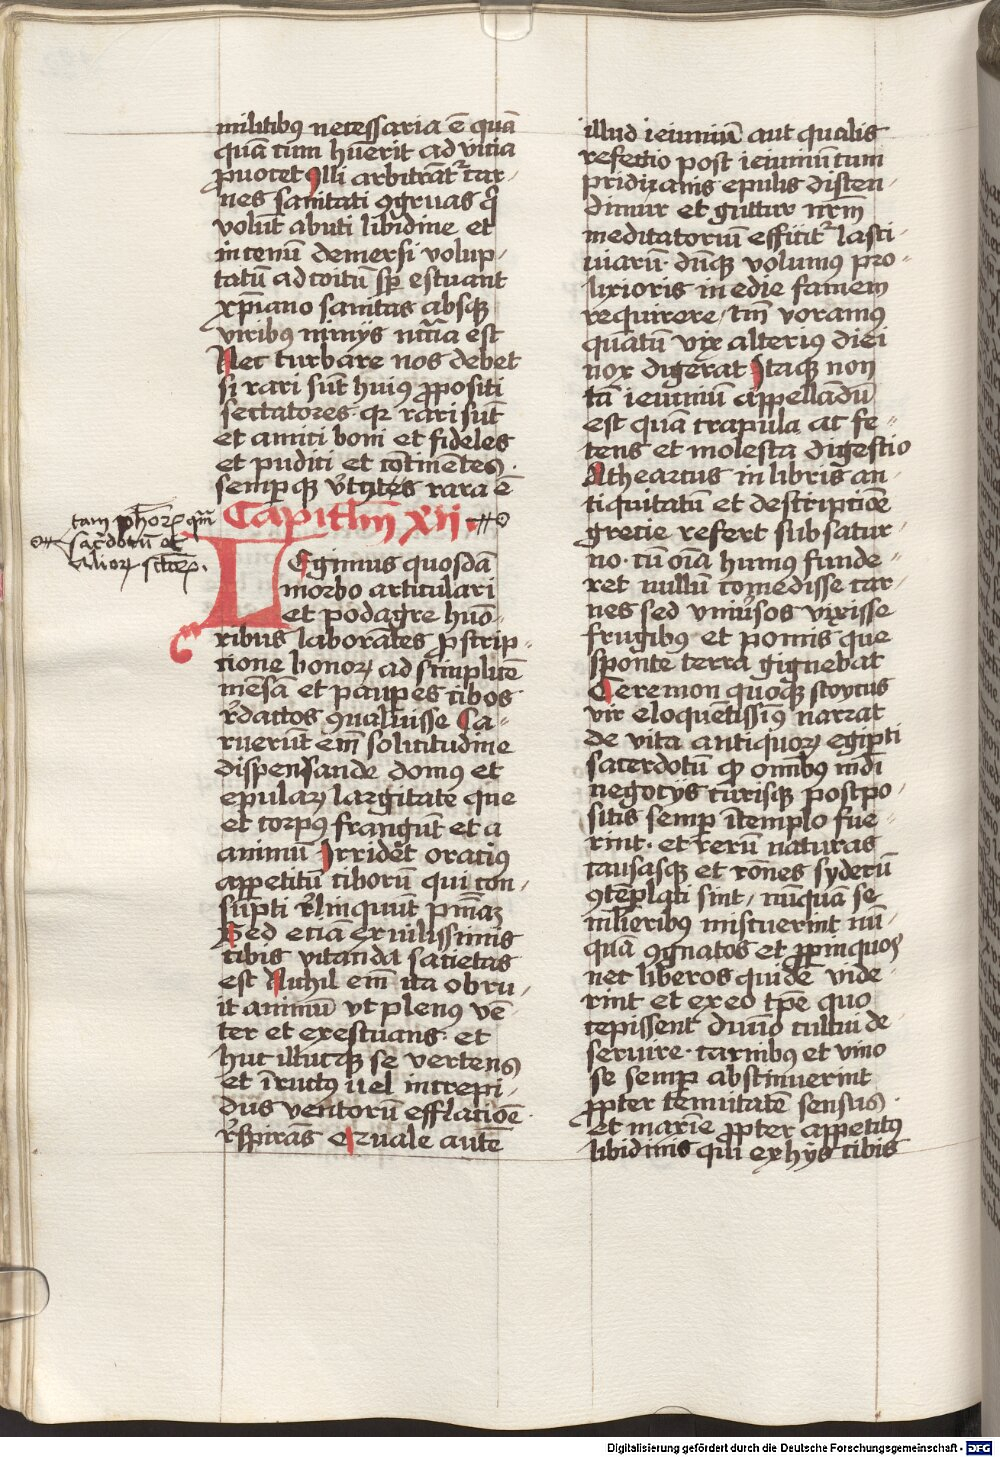 militibus necessaria ē quā
quā cum hūerit ad vicia
ꝓuocet Illi arbitrāt᷑ car-
nes sanitati ꝯgruas q̄
volūt abuti libidine et
in cenū demersi volup-
tatū ad coitū sꝑ estuant
xp̄iano sanitas absqꝫ
viribus nimijs nc̄cia est
Nec turbare nos debet
si rari sūt huius ꝓpositi
sectatores qꝛ rari sūt
et amici boni et fideles
et pudici et cōtinētes
semꝑqꝫ v̄tutes rara ē
Capitlm̄ xii
tam ph̄oꝝ qm̄
sac̄dotū et
alioꝝ
Legimus quosdā
morbo articulari
et podagre hūo-
ribus laborātes ꝓscrip-
cione bonoꝝ ad simplicē
mēsā et pauꝑes cibos
r̄dactos ꝯualuisse Ca-
ruerūt em̄ solicitudine
dispensande domꝰ et
epulaꝝ largitate que
et corpꝰ frangūt et a
animū Irridēt oracius
appetitū ciborū qui con-
sūpti r̄linquūt pn̄iaꝫ
Sed eciā ex vilissimis
cibis vitanda sacietas
est Nichil em̄ ita obru-
it animū vt plenus vē-
ter et exestuans et
huc illucqꝫ se vertens
et ī ructus uel in crepi-
dus ventorū efflacioē
r̄spirās Equale autē
illud ieiuniū aut qualis
refectio post ieiuniū cum
pridianis epulis disten-
dimur et guttur nr̄m
meditatoriū efficit᷑ lasci-
uiarū dūqꝫ volumus pro-
lixioris inedie famem
requirere tm̄ voramus
quātū vix alterius diei
nox digerat Itaqꝫ non
tā ieiuniū appellādū
est quā crapula ac fe-
tens et molesta digestio
Atheartus in libris an-
tiquitatū et descripcioē
grecie refert sub satur-
no cū oīa humus funde-
ret nullū comedisse car-
nes sed vniūsos vixisse
frugibus et pomis que
sponte terra gignebat
Ceremon quoqꝫ stoycus
vir eloquētissimꝰ narrat
de vita antiquoꝝ egipti
sacerdotū ꝙ omībus mūdi
negocijs curisqꝫ postpo-
sitis semꝑ ī templo fue-
rint et rerū naturas
causasqꝫ et rōnes syderū
ꝯtēplati sint nūquā se
mlieribus miscuerint nū-
quā ꝯgnatos et ꝓpinquos
nec liberos quidē vide-
rint et ex eo tp̄e quo
cepissent diuīo cultui de-
seruire carnibus et vino
se semꝑ abstinuerint
ꝓpter tenuitatē sensus
et maxīe ꝓpter appetitus
libidinis qui ex hijs cibis
Digitalisierung gefördert durch die Deutsche Forschungsgemeinschaft - DFG